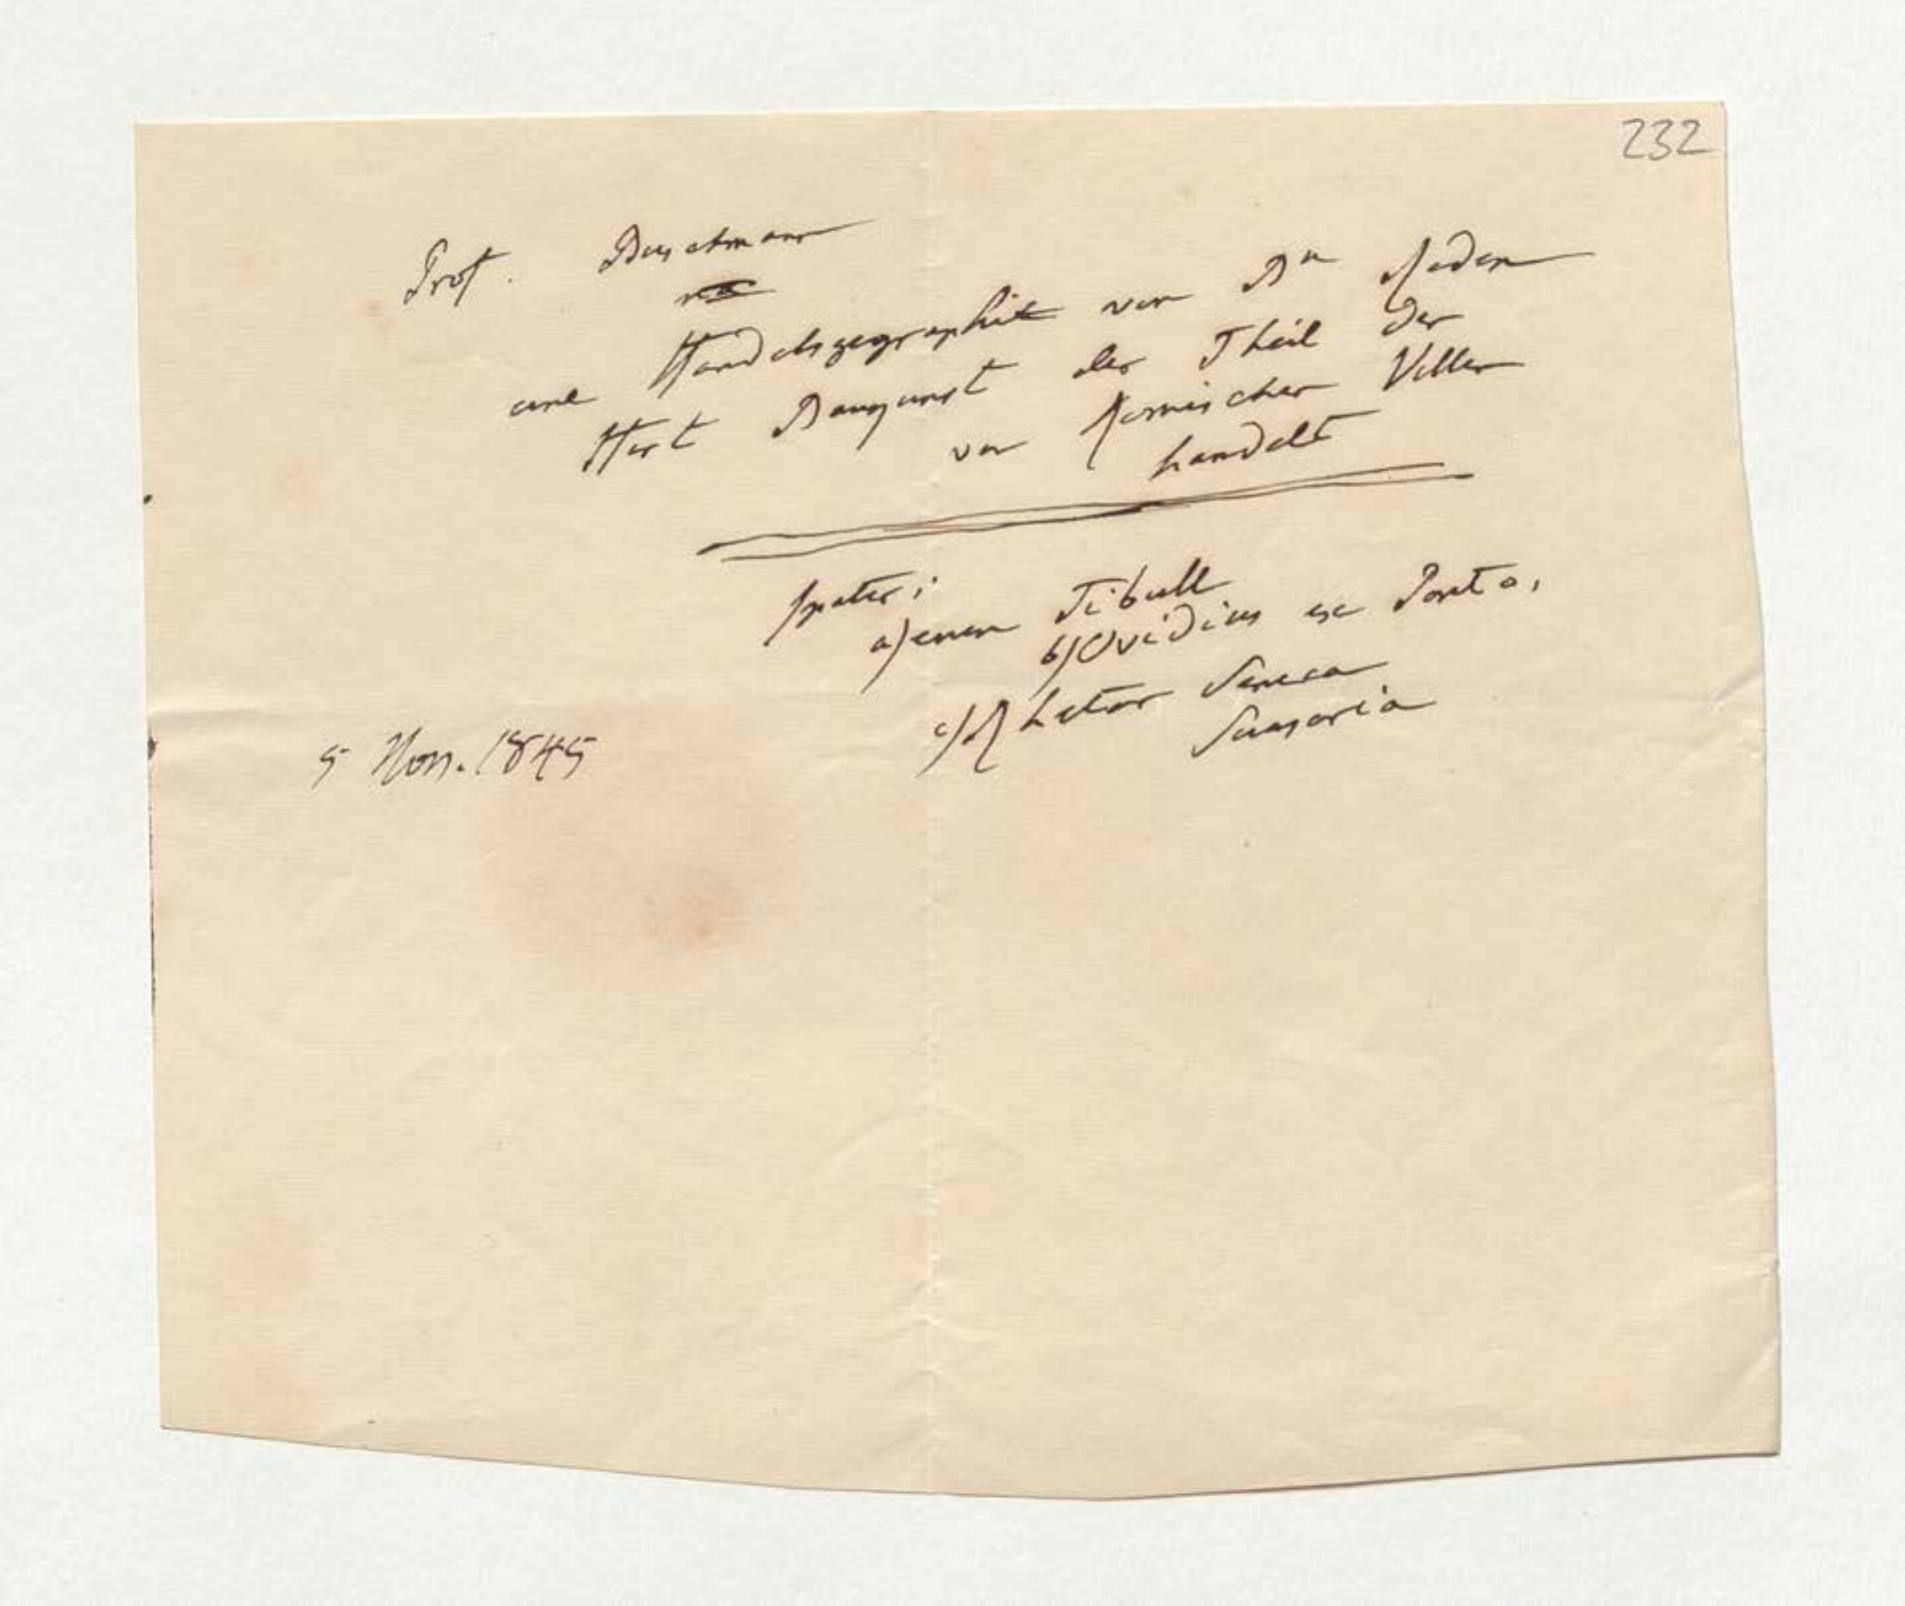 232
Prof. Buschmann
Handelsgeographie von Bn Reden
und
Hirt Baugunst der Theil der
von Römischer Villen
handelt
später:
a) einen Tibull
b) Ovidius ex Ponto,
c) Rhetor Seneca
Suasoria
5 Nov. 1845